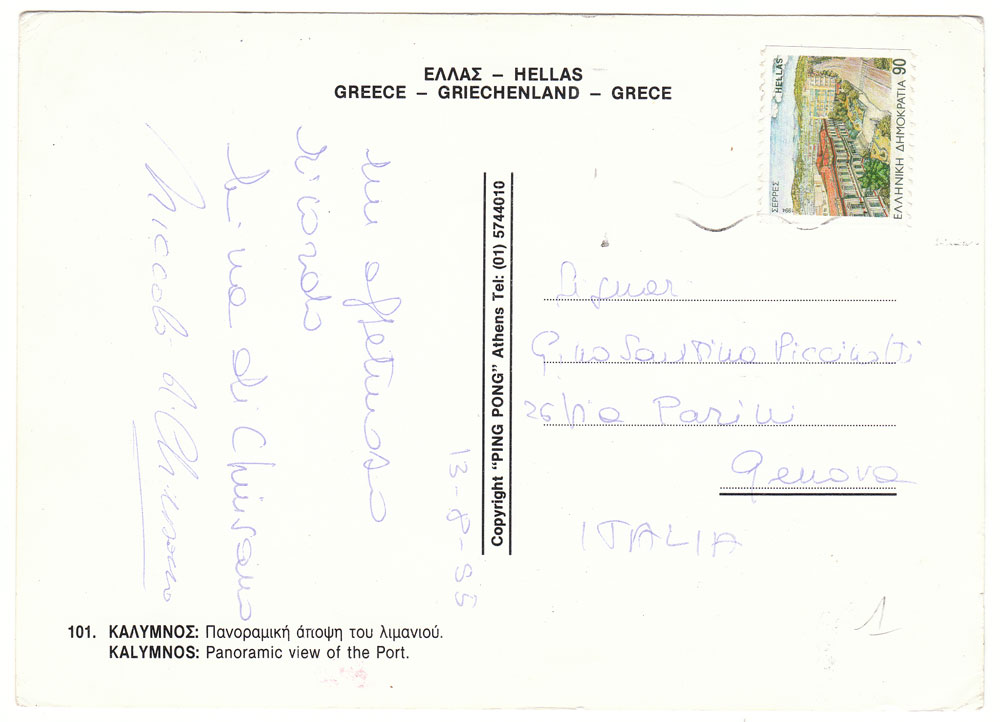 ΕΛΛΑΣ – HELLAS
GREECE – GRIECHENLAND – GRECE
HELLAS
90
ΕΛΛΗΝΙΚΗ ΔΗΜΟΚΡΑΤΙΑ
ΣΕΡΡΕΣ
1994
13-8-95
un affettuoso
ricordo
di Chiusano
Niccolò
Copyright “PING PONG” Athens Tel: (01) 5744010
Signor
Gino Santino Piccinotti
26 Via Parini
Genova
ITALIA
1
101. ΚΑΛΥΜΝΟΣ: Πανοραμική άποψη του λιμανιού.
KALYMNOS: Panoramic view of the Port.